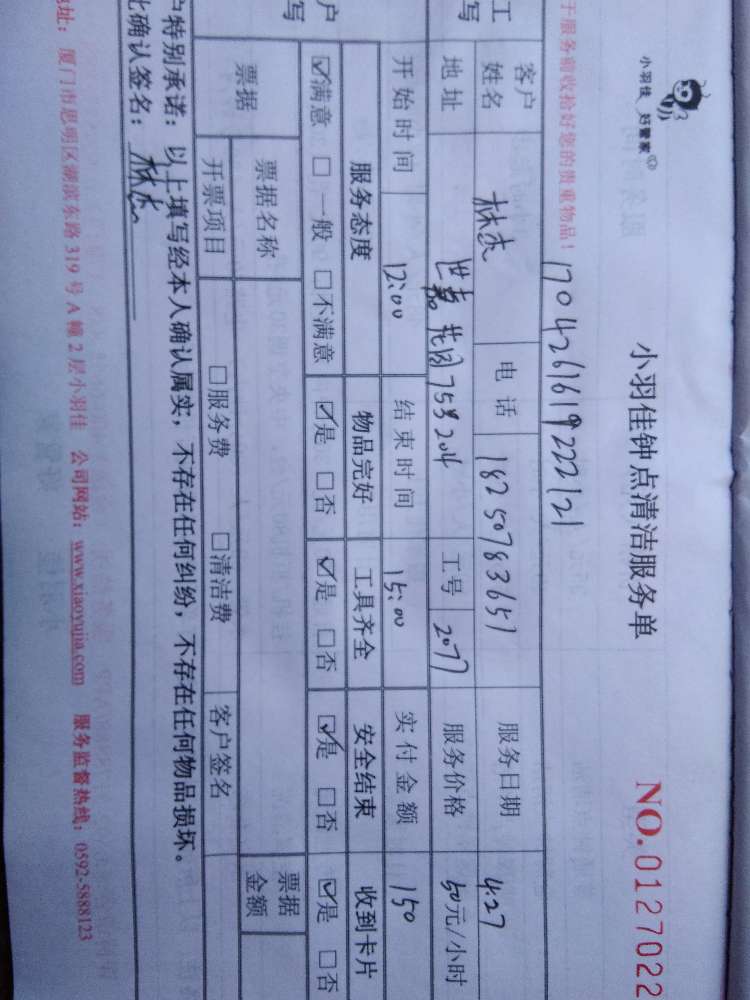 小羽佳 妇管家
小羽佳钟点清洁服务单 NO.0127022
于服务前收拾好您的贵重物品！ 1704261619222121
工 写
客户姓名 林杰 电话 18250783651 服务日期 4.27
地址 世嘉花园75号204 工号 2077 服务价格 50元/小时
开始时间 12:00 结束时间 15:00 实付金额 150
户 写
服务态度 物品完好 工具齐全 安全结束 收到卡片
☑满意 □一般 □不满意 ☑是 □否 ☑是 □否 ☑是 □否 ☑是 □否
票据 票据名称 票据金额
开票项目 □服务费 □清洁费 客户签名
户特别承诺：以上填写经本人确认属实，不存在任何纠纷，不存在任何物品损坏。
比确认签名：林杰
地址：厦门市思明区湖滨东路319号A幢2层小羽佳 公司网站：www.xiaoyujia.com 服务监督热线：0592-5888123